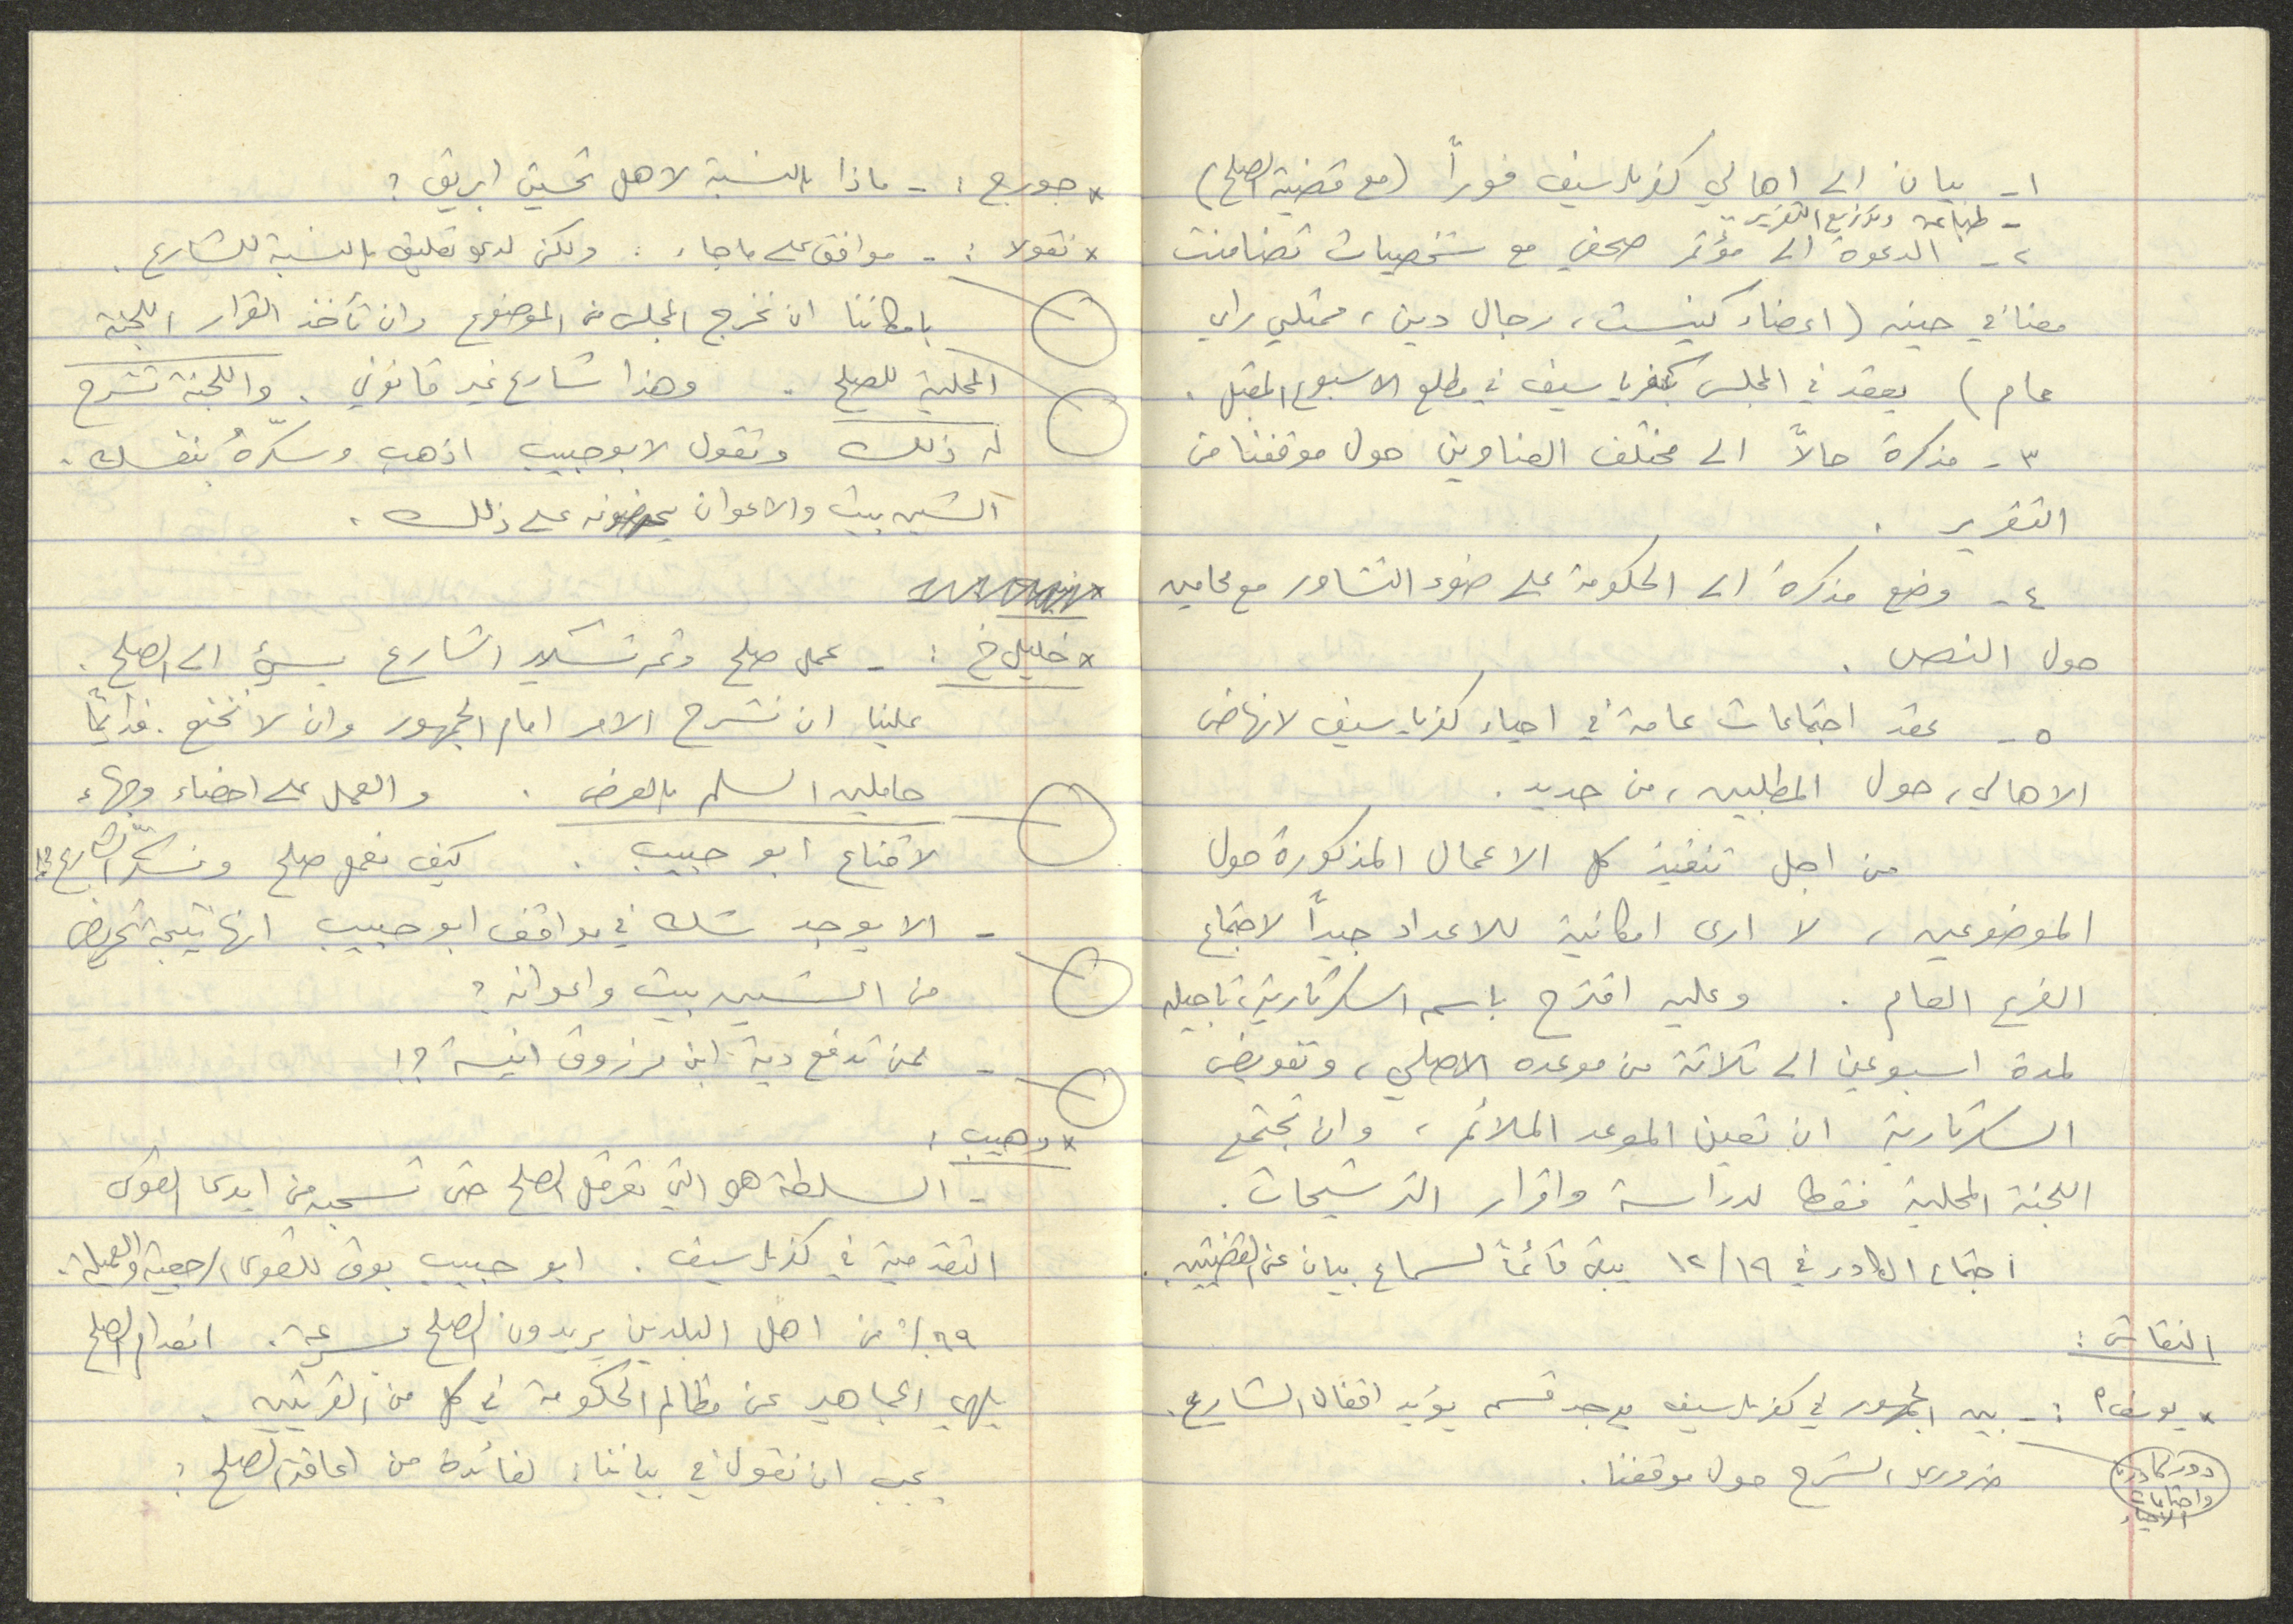 ١- بيان الى اهالي كفرياسيف فوراً (مع قضية الصلح)
- طباعة وتوزيع التقرير ..
٢- الدعوة الى مؤتمر صحفي مع شخصيات تضامنت
معنا في حينه (اعضاء كنيست، رجال دين، ممثلي راي
عام) يعقد في المجلس بكفرياسيف في مطلع الاسبوع المقبل.
٣- مذكرة حالاً الى مختلف العناوين حول موقفنا من
التقرير.
٤- وضع مذكرة الى الحكومة على ضوء التشاور مع محامين
حول النص.
٥- عقد اجتماعات عامة في احياء كفرياسيف لانهاض
الاهالي، حول المطلبين، من جديد.
من اجل تنفيذ كل الاعمال المذكورة حول
الموضوعين، لا ارى امكانية للاعداد جيداً لاجتماع
الفرع العام. وعليه اقترح باسم السكرتارية، تاجيله
لمدة اسبوعين الى ثلاثة من موعده الاصلي، وتفويض
السكرتارية ان تعين الموعد الملائم، وان تجتمع
اللجنة المحلية فقط لدراسة واقرار الترشيحات.
اجتماع الكادر في ١٢/١٩ يبقى قائماً لسماع بيان عن القضيتين.
النقاش:
* يوسف: - بين الجمهور في كفرياسيف يوجد قسم يؤيد اقفال الشارع.
ضروري الشرح حول موقفنا.
دور كادرنا
واجتماعات
الاحياء
* جورج: - ماذا بالنسبة لاهل تحسين ابريق؟
* نقولا: - موافق على ما جاء: ولكن لدي تعليق بالنسبة للشارع.
بامكاننا ان نخرج المجلس من الموضوع وان تأخذ القرار اللجنة
المحلية للصلح. وهذا شارع غير قانوني. واللجنة تشرح
له ذلك وتقول لابو حبيب اذهب وسكّرهُ بنفسك.
الشين بيت والاعوان يحرضونه على ذلك.
* خليل خ: - عمل صلح وثم تسكير الشارع يسيء الى الصلح.
علينا ان نشرح الامر امام الجمهور وان لا نخنع. فدائماً
حاملين السلم بالعرض. والعمل على اعضاء وجهاء
لاقناع ابو حبيب. كيف نعمل صلح ونسكّر الشارع؟!
- الا يوجد شك في مواقف ابو حبيب انها نتيجة تحريض
من الشين بيت واعوانه؟
- لمن تدفع دية ابن مرزوق انيسة؟!
* وهيب:
- السلطة هي التي تعرقل الصلح حتى تسحبه من ايدي القوى
التقدمية في كفرياسيف. ابو حبيب بوق للقوى الرجعية والعميلة.
٩٩٪ من اهل البلدين يريدون الصلح بسرعة. انعدام الصلح
يلهي الجماهير عن مظالم الحكومة في كل من القريتين.
يجب ان نقول في بياننا: لفائدة من اعاقة الصلح؟